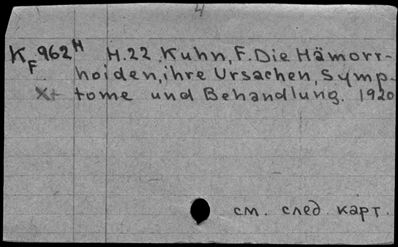 4
K F 962 H H.22. Kuhn, F. Die Hämorr-
hoiden, ihre Ursachen, Symp-
tome und Behandlung. 1920
см. след. карт.